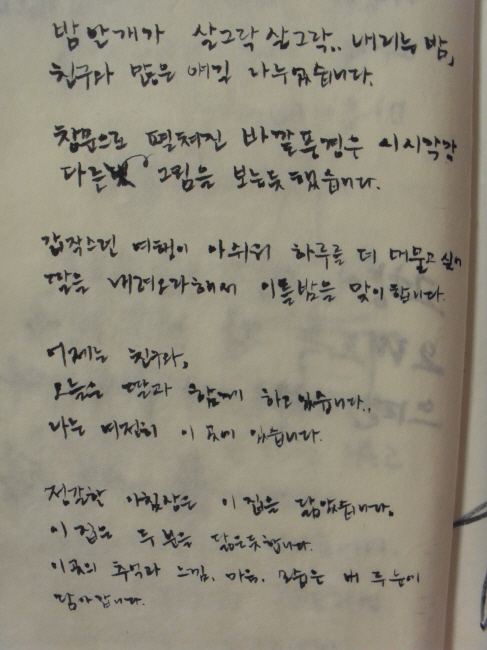 밤 안개가 살그락 살그락.. 내리는 밤,
친구와 많은 얘길 나누었습니다.
창문으로 펼쳐진 바깥풍경은 시시각각
다른 그림을 보는듯 했습니다.
갑작스런 여행이 아쉬워 하루를 더 머물고 싶어
딸을 내려오라해서 이틀밤을 맞이합니다.
어제는 친구와,
오늘은 딸과 함께 하고 있습니다..
나는 여전히 이 곳에 있습니다.
정갈한 아침상은 이 집을 닮았습니다.
이 집은 두 분을 닮은듯합니다.
이곳의 추억과 느낌, 마음, 모습은 내 두 눈에
담아갑니다.